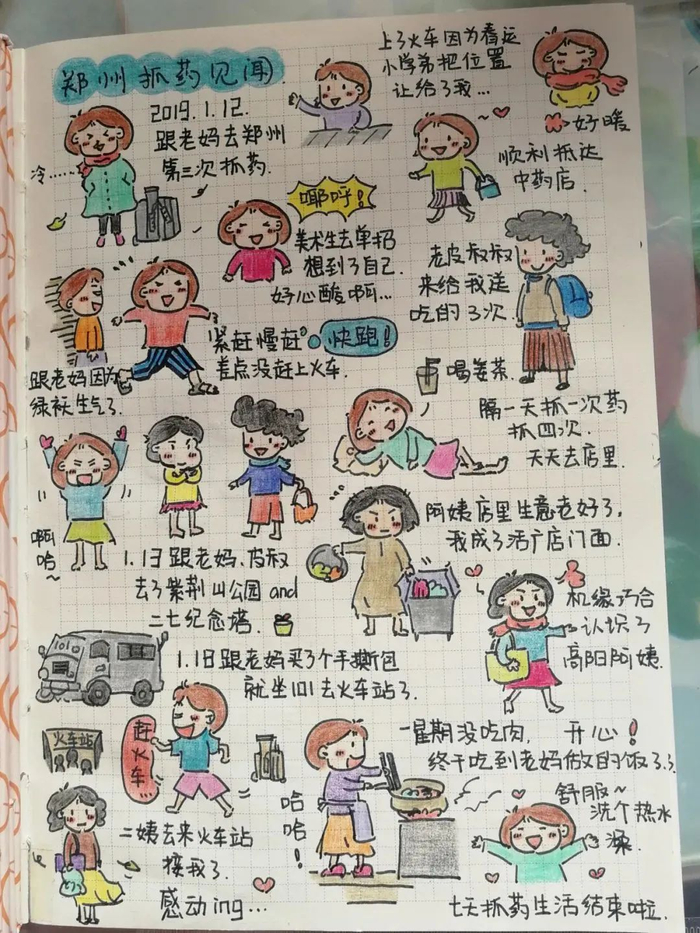 郑州抓药见闻.
2019.1.12.
跟老妈去郑州
第三次抓药.
冷......
上了火车因为春运
小学弟把位置
让给了我...
好暖
顺利抵达
中药店.
耶呼!
美术生去单招
想到了自己.
好心酸啊...
老皮叔叔
来给我送
吃的了2次
紧赶慢赶。快跑!
差点没赶上火车.
跟老妈因为
绿袄生气了.
喝姜茶.
隔一天抓一次药
抓四次.
天天去店里.
啊
哈~
1.1日跟老妈、皮叔
去了紫荆山公园and
二七纪念塔.
阿姨店里生意老好了,
我成了活广店门面.
机缘巧合
认识了
高阳阿姨.
1.1日跟老妈买了个手撕包
就坐101去火车站了.
101
火车站
赶火车
一星期没吃肉, 开心!
终于吃到老妈做的饭了.
哈哈!
舒服~
洗个热水
澡.
二姨去来火车站
接我了.
感动ing...
七天抓药生活结束啦.